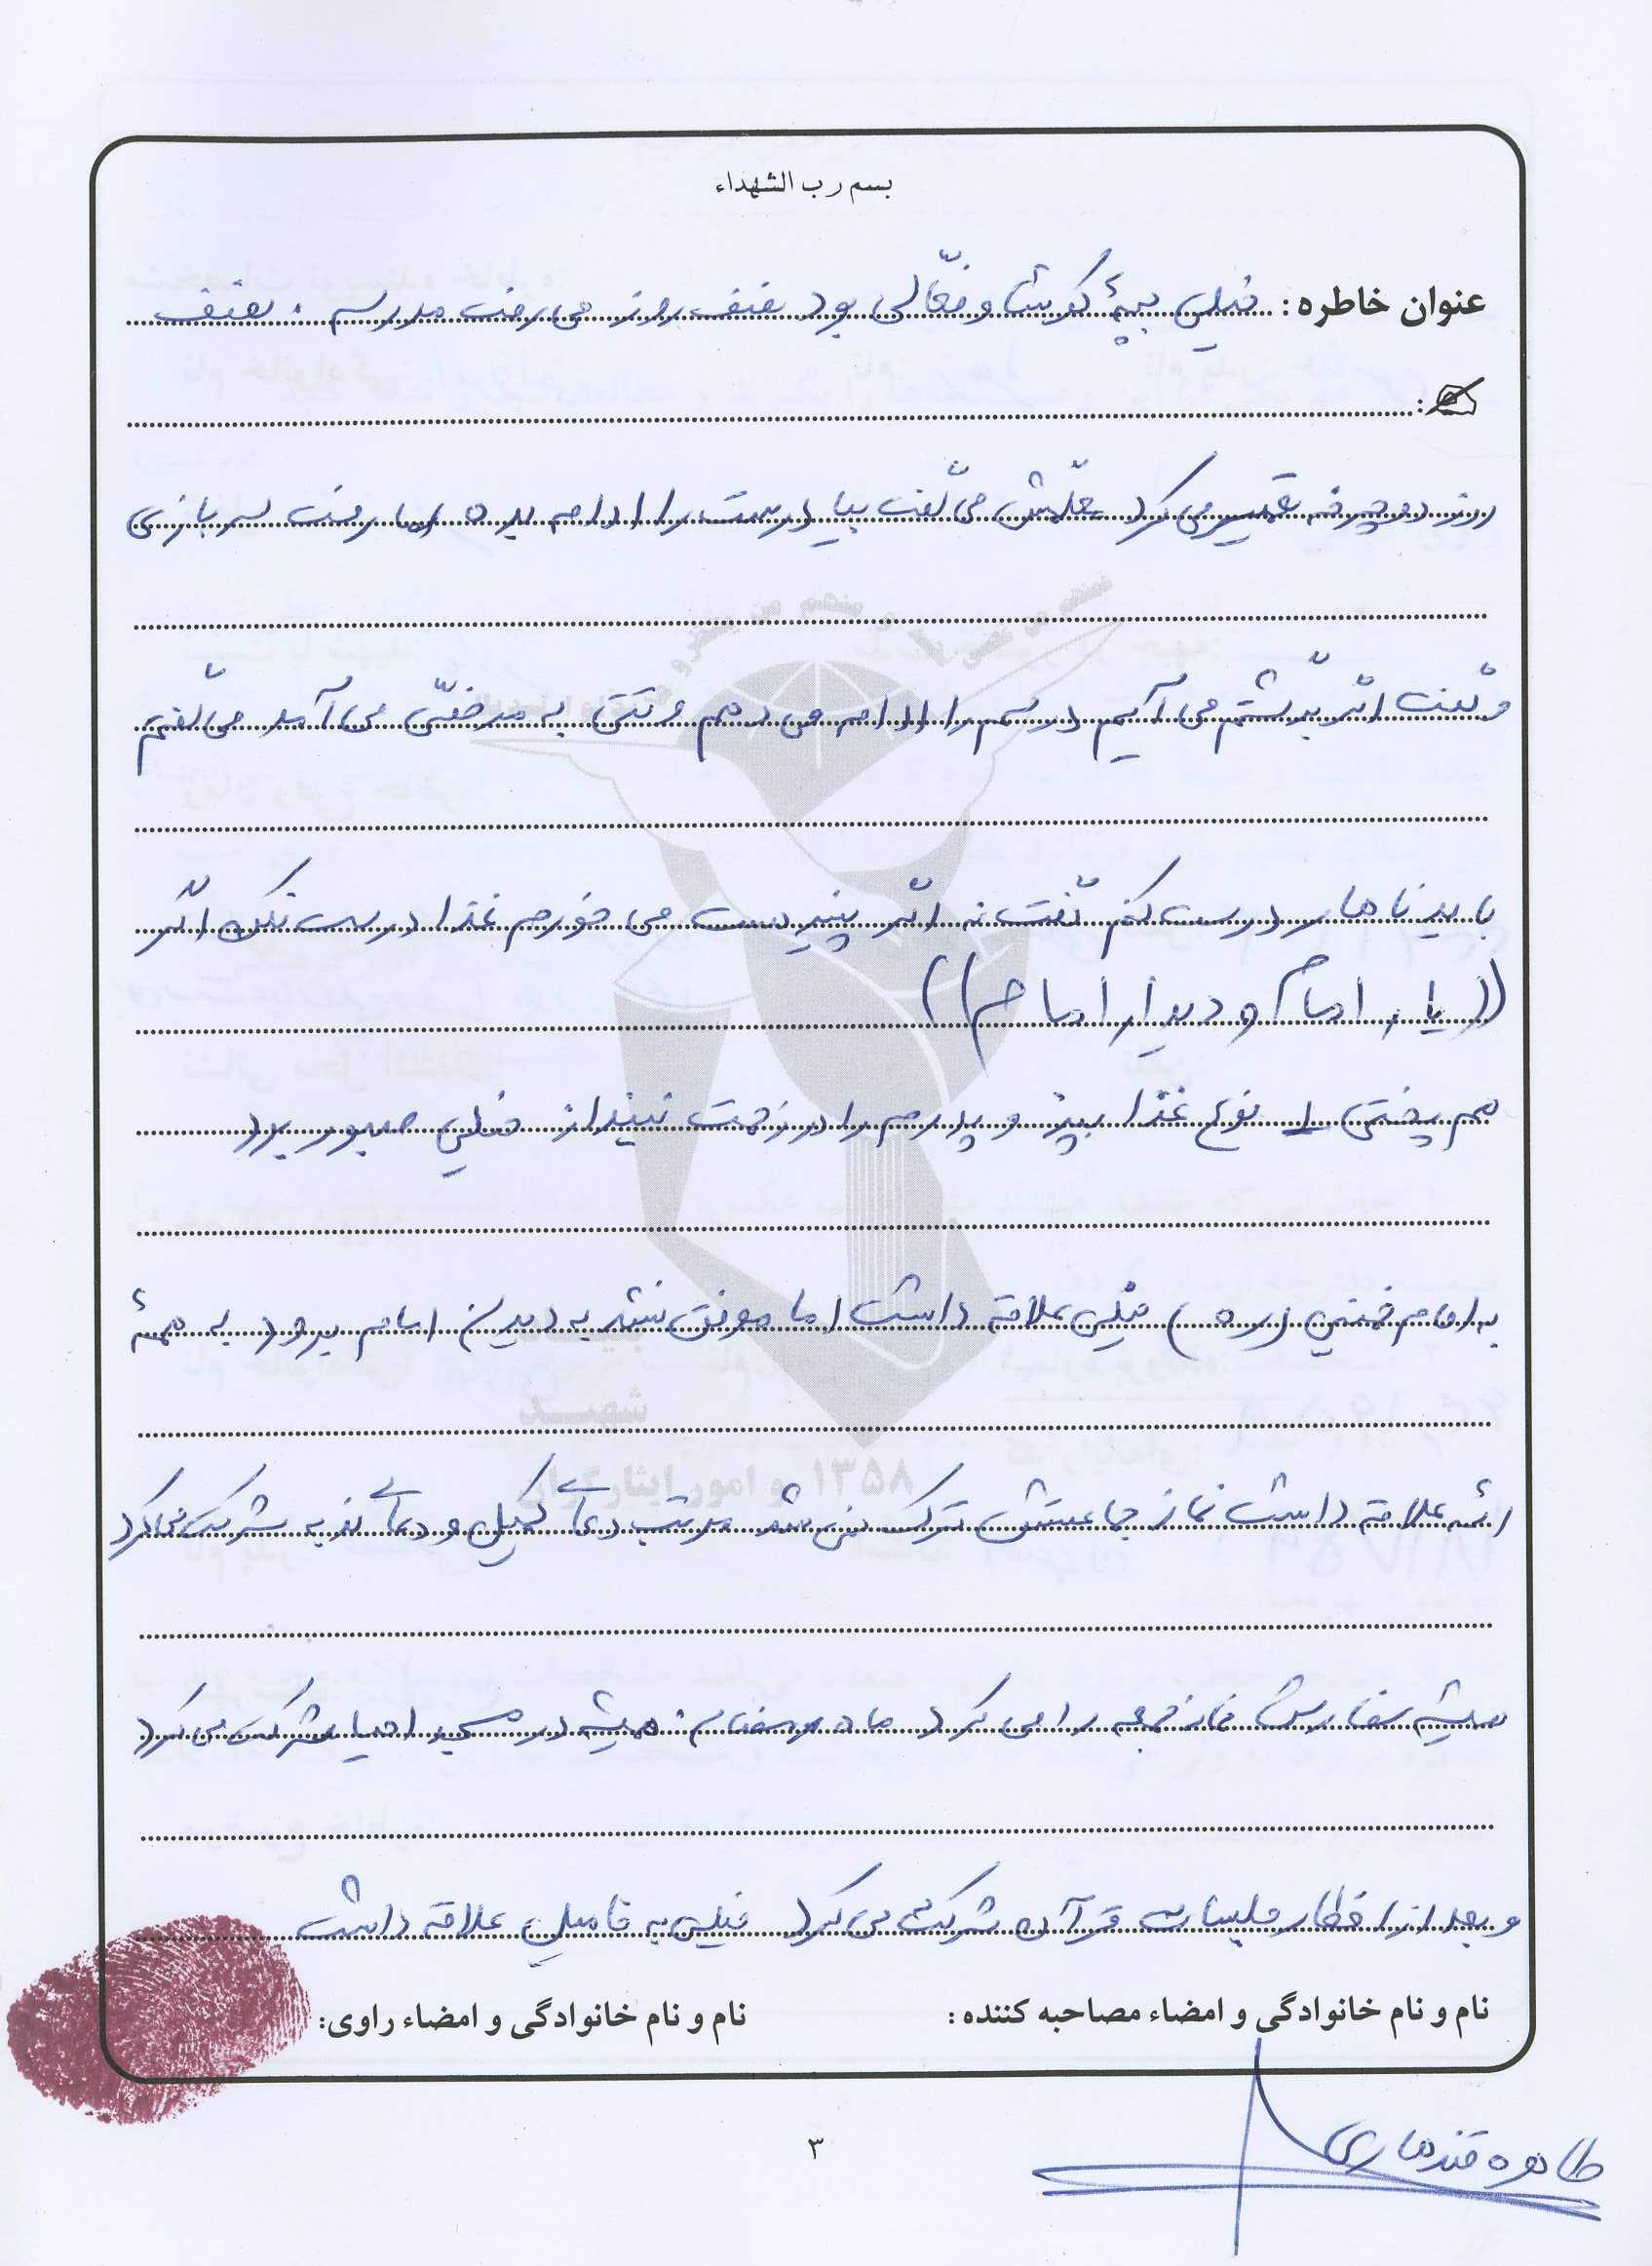 بسم رب الشهداء
عنوان خاطره: خیلی بچهٔ کوشا و فعّالی بود نصف روز می رفت مدرسه. نصف
روز دوچرخه تعمیر می کرد معلّمش می گفت بیا درست را ادامه بده اما رفت سربازی
و گفت اگر برگشتم می آیم درسم را ادامه می دهم وقتی به مرخصّی می آمد می گفتم
باید ناهار درست کنم گفت نه اگر پنیر هست می خورم غذا درست نکن اگر
((یار امام و دیدار امام))
هم پختی ۱ نوع غذا بپز و پدرم را در زحمت نینداز خیلی صبور بود
به امام خمینی (ره) خیلی علاقه داشت اما موفق نشد به دیدن امام برود به همهٔ
ائمه علاقه داشت نماز جماعتش ترک نمی شد مرتب دعای کمیل و دعای ندبه شرکت می کرد
همیشه سفارش نماز جمعه را می کرد ماه رمضان همیشه در مسجد احیا شرکت می کرد
و بعد از افطار جلسات قرآن شرکت می کرد خیلی به فامیل علاقه داشت
نام و نام خانوادگی و امضاء مصاحبه کننده: نام و نام خانوادگی و امضاء راوی:
طاهره قندهاری
۳